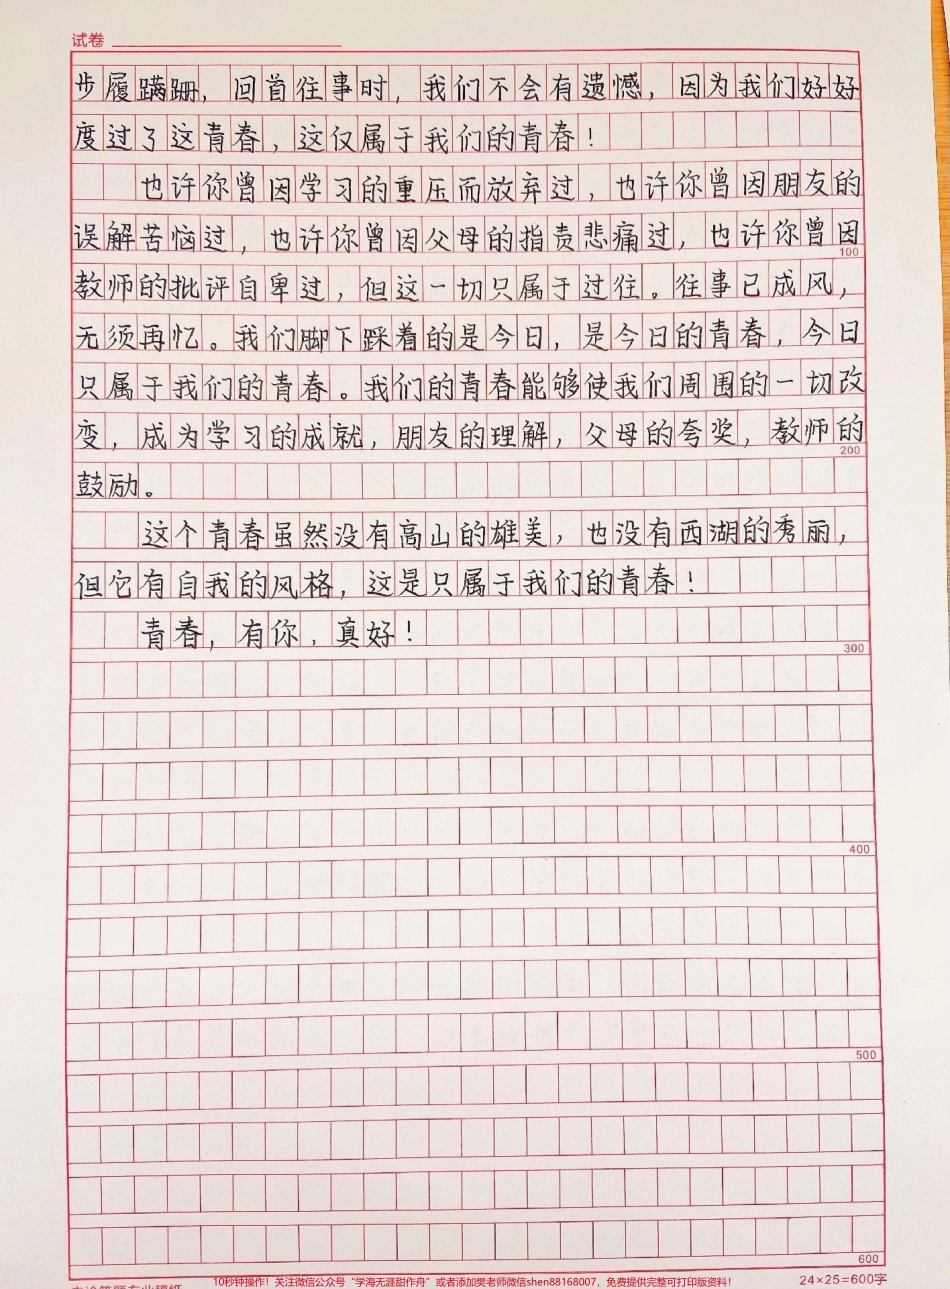 试卷
步履蹒跚，回首往事时，我们不会有遗憾，因为我们好好
度过了这青春，这仅属于我们的青春！
也许你曾因学习的重压而放弃过，也许你曾因朋友的
误解苦恼过，也许你曾因父母的指责悲痛过，也许你曾因
100
教师的批评自卑过，但这一切只属于过往。往事已成风，
无须再忆。我们脚下踩着的是今日，是今日的青春，今日
只属于我们的青春。我们的青春能够使我们周围的一切改
变，成为学习的成就，朋友的理解，父母的夸奖，教师的
200
鼓励。
这个青春虽然没有高山的雄美，也没有西湖的秀丽，
但它有自我的风格，这是只属于我们的青春！
青春，有你，真好！
300
400
500
600
10秒钟操作！关注微信公众号“学海无涯甜作舟”或者添加樊老师微信shen88168007，免费提供完整可打印版资料！
24×25=600字